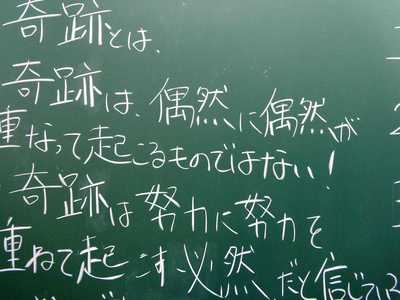 奇跡とは、
奇跡は、偶然に偶然が
重なって起こるものではない!
奇跡は努力に努力を
重ねて起こす必然だと信じている